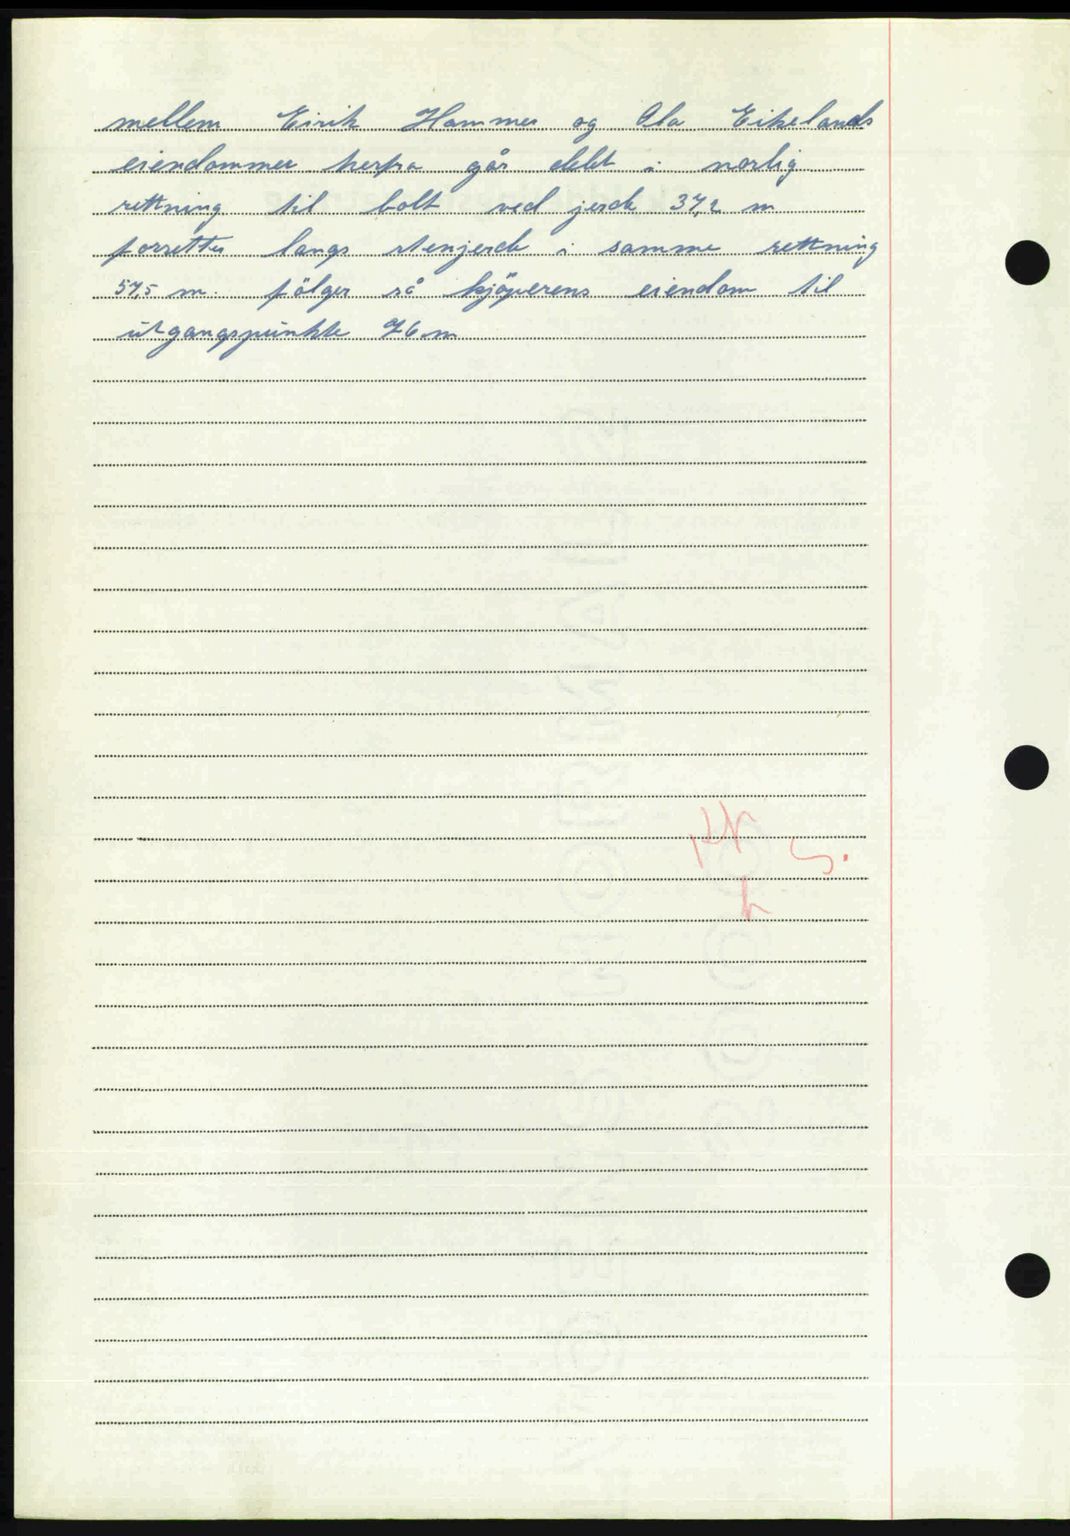 mellem Eirik Hammer og Ola Eikelands
eiendommer herfra går delet i norlig
rettning til bolt ved jerde 37,2 m
forsetter langs stenjerde i samme rettning
57,5 m. følger så kjøperens eiendom til
utgangspunkte 76 m